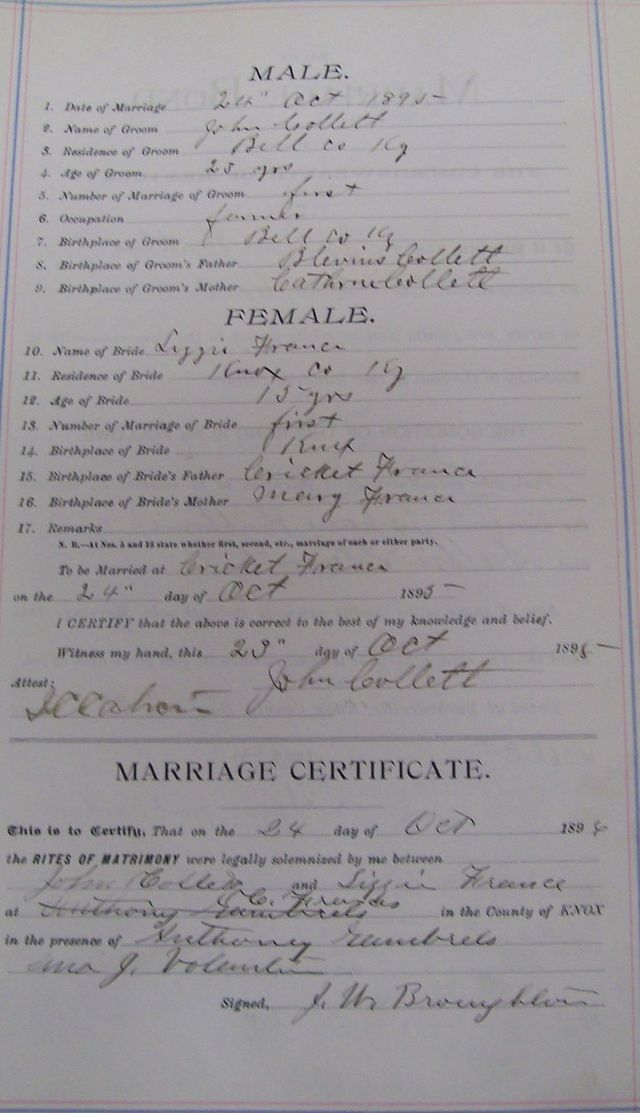 MALE.
1. Date of Marriage 24" Oct 1895
2. Name of Groom John Collett
3. Residence of Groom Bell co Ky
4. Age of Groom 23 yrs
5. Number of Marriage of Groom first
6. Occupation farmer
7. Birthplace of Groom Bell co Ky
8. Birthplace of Groom's Father Blevins Collett
9. Birthplace of Groom's Mother Cathrine Collett
FEMALE.
10. Name of Bride Lizzie France
11. Residence of Bride Knox co Ky
12. Age of Bride 15 yrs
13. Number of Marriage of Bride first
14. Birthplace of Bride Knox
15. Birthplace of Bride's Father Cricket France
16. Birthplace of Bride's Mother Mary France
17. Remarks
N. B.—At Nos. 5 and 13 state whether first, second, etc., marriage of each or either party.
To be Married at Cricket France
on the 24" day of Oct 1895
I CERTIFY that the above is correct to the best of my knowledge and belief.
Witness my hand, this 23" day of Oct 1895
John Collett
Attest:
MARRIAGE CERTIFICATE.
This is to Certify, That on the 24 day of Oct 189
the RITES OF MATRIMONY were legally solemnized by me between
John Collett and Lizzie France
at Anthony Gambrels in the County of KNOX
in the presence of Anthoney Gambrels
J. Volentin
Signed, J. W. Broughton